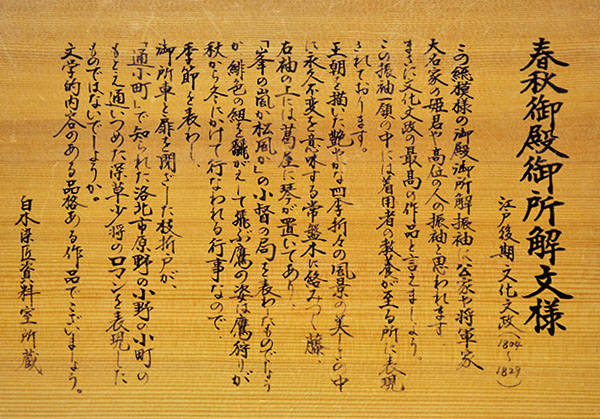 春秋御殿御所解文様
江戸後期 文化文政(1804〜1829)
この総模様の御殿御所解振袖は公家や将軍家
大名家の姫君や高位の人の振袖と思われます
まさに文化文政の最高の作品と言えましょう。
この振袖一領の中には着用者の教養が至る所に表現
されております。
王朝を描いた艶やかな四季折々の風景の美しさの中
に永久不変を意味する常盤木に絡みつく藤、
右袖の上には葛屋に琴が置いてあり、
「峯の嵐か松風か」の小督の局を表わしたものでしょう
か 緋色の紐を翻がえして飛ぶ鷹の姿は鷹狩りが
秋から冬にかけて行なわれる行事なので、
季節を表わし、
御所車と扉を閉ざした枝折戸が、
「通小町」で知られた洛北市原野の小野の小町の
もとえ通いつめた深草少将のロマンを表現した
ものではないでしょうか。
文学的内容のある品格ある作品でございましょう。
白木染匠資料室所蔵